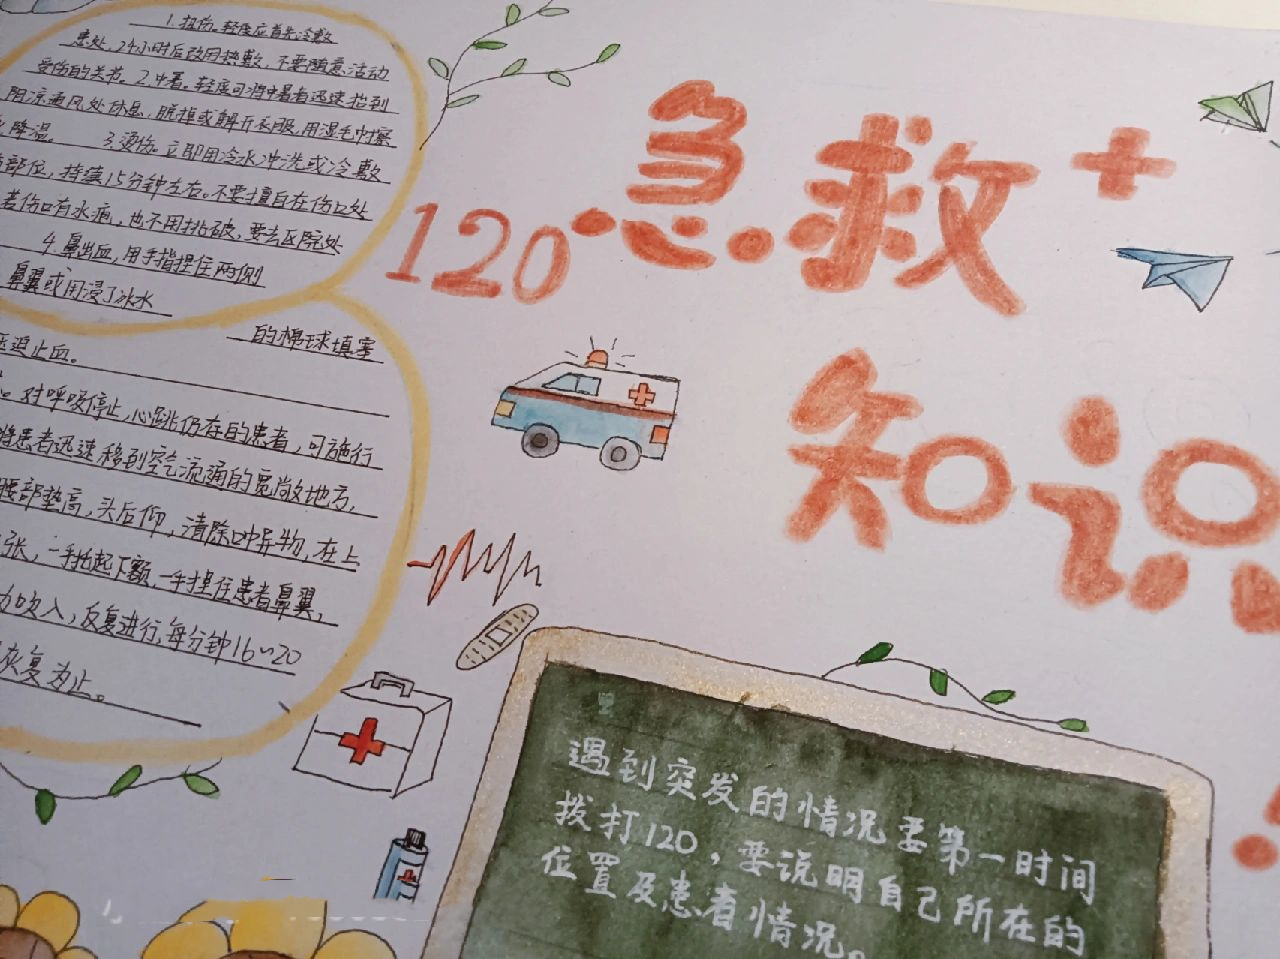 1. 扭伤。轻度应首先冷敷
患处，24小时后改用热敷，不要随意活动
受伤的关节。2.中暑。轻度可将中暑者迅速抬到
阴凉通风处休息，脱掉或解开衣服，用湿毛巾擦
降温。 3.烫伤。立即用冷水冲洗或冷敷
部位，持续15分钟左右。不要擅自在伤口处
若伤口有水疱，也不用挑破，要去医院处
4.鼻出血，用手指捏住两侧
鼻翼或用浸了冰水
的棉球填塞
压迫止血。
对呼吸停止，心跳仍存的患者，可施行
将患者迅速移到空气流通的宽敞地方，
腰部垫高，头后仰，清除口中异物，在上
张，一手抬起下颚，一手捏住患者鼻翼，
力吹入，反复进行，每分钟16~20
恢复为止。
120·急救+
知识
遇到突发的情况要第一时间
拨打120，要说明自己所在的
位置及患者情况。